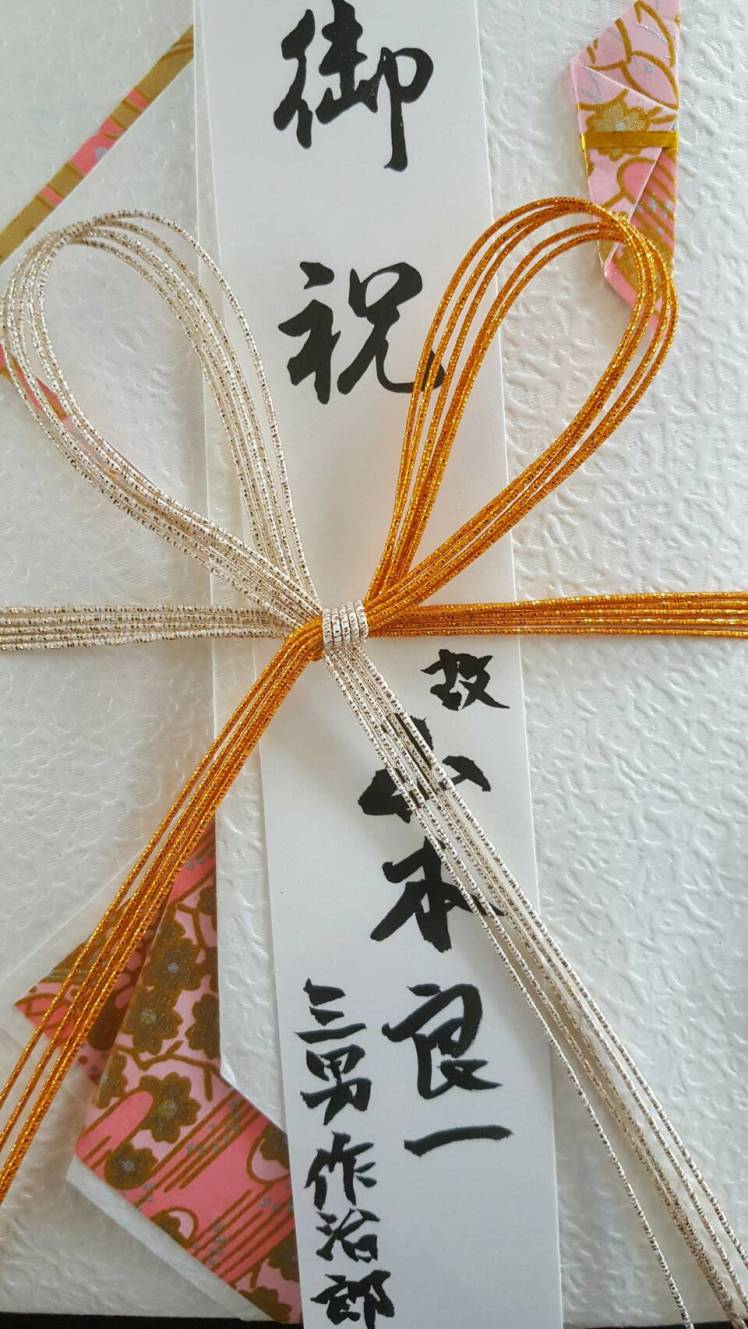 御祝
故 山本良一
三男 作治郎